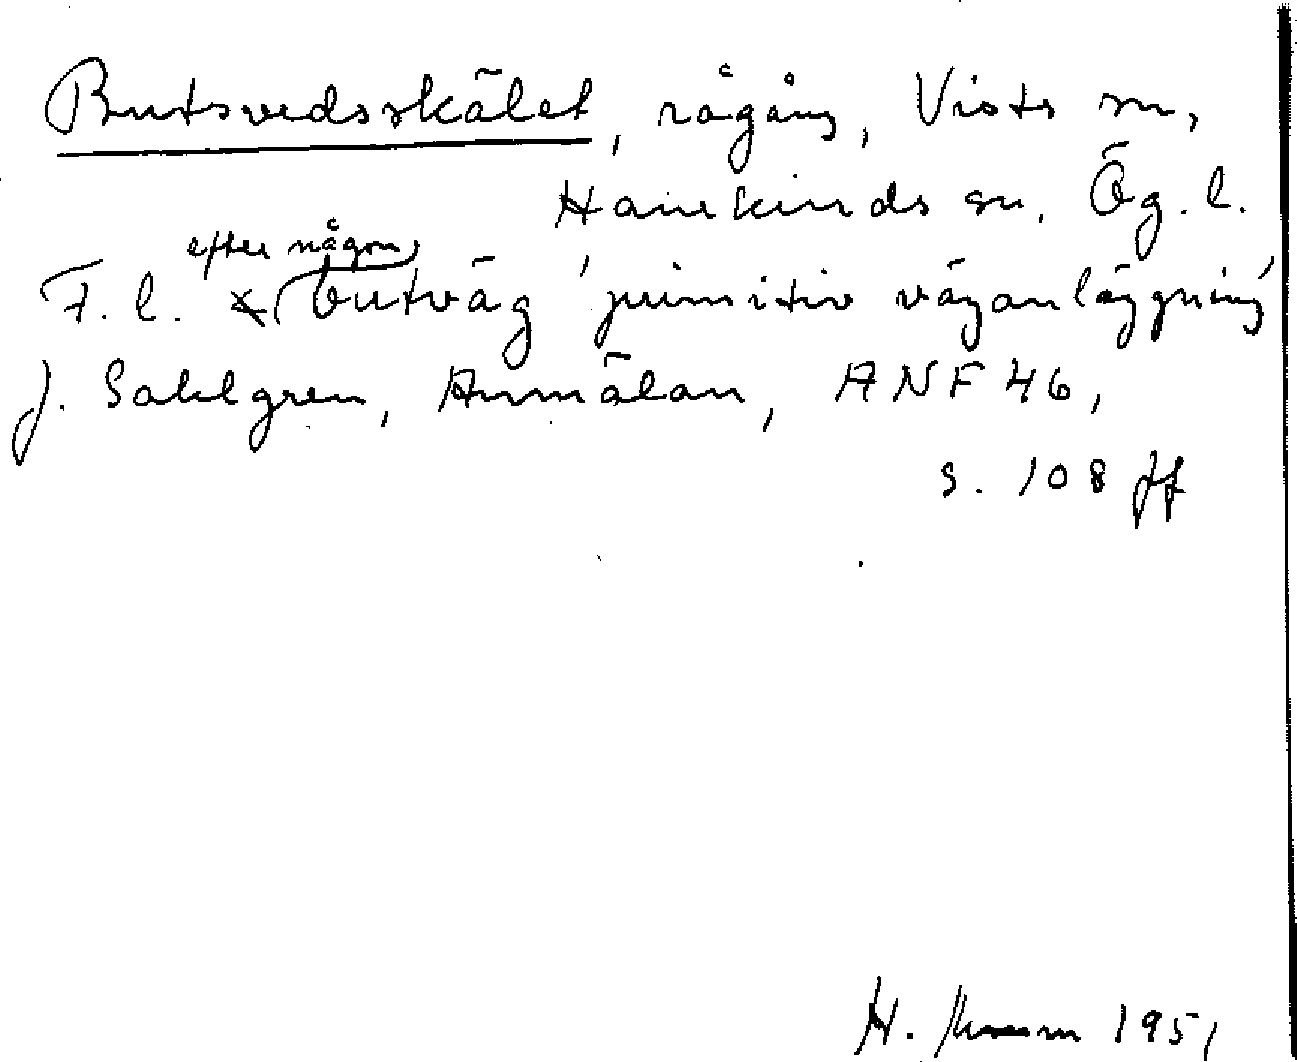 Butsvedsskälet, rågång, Vists sn,
Hanekinds sn, Ög. l.
efter någon
F. l. butväg 'primitiv väganläggning'
J. Sahlgren, Anmälan, ANF 46,
s. 108 ff
H. 1951